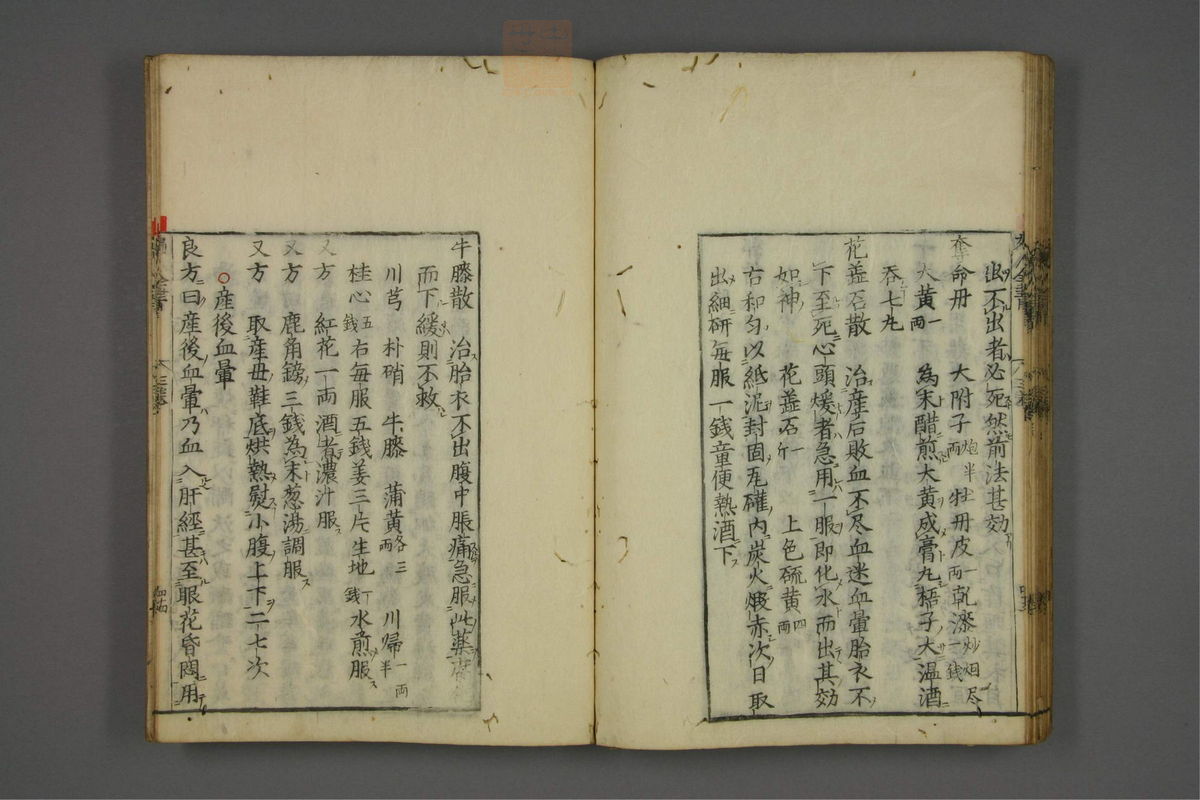 出不出者必死然前法甚効
奪命丹　大附子炮半両　牡丹皮一両　乾漆炒烟尽一銭
大黄一両　為末醋煎大黄成膏丸梧子大温酒
吞七丸
花蕊石散　治産后敗血不尽血迷血暈胎衣不
下至死心頭煖者急用一服即化水而出其効
如神　花蕊石一斤　上色硫黄四両
右和匀以紙泥封固瓦罐内炭火煅赤次日取
出細研毎服一銭童便熱酒下
牛膝散　治胎衣不出腹中脹痛急服此薬
而下緩則不救
川芎　朴硝　牛膝　蒲黄各三両　川帰一両半
桂心五銭　右毎服五銭姜三片生地一銭水煎服
又方　紅花一両酒煮濃汁服
又方　鹿角鎊三銭為末葱湯調服
又方　取産母鞋底烘熱熨小腹上下二七次
○産後血暈
良方曰産後血暈乃血入肝経甚至眼花昏悶用